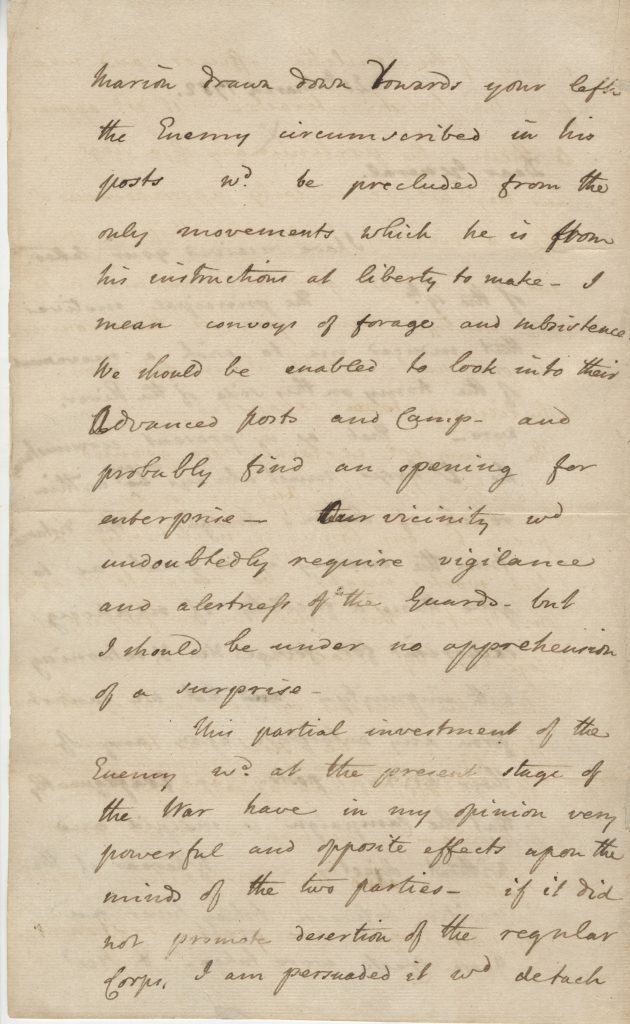 Marion drawn down towards your left
the Enemy circumscribed in his
posts wd. be precluded from the
only movements which he is from
his instructions at liberty to make - I
mean convoys of forage and subsistence
We should be enabled to look into their
Advanced posts and Camp - and
probably find an opening for
enterprise — Our vicinity wd
undoubtedly require vigilance
and alertness of the Guards - but
I should be under no apprehension
of a surprise -
This partial investment of the
Enemy wd. at the present stage of
the War have in my opinion very
powerful and opposite effects upon the
minds of the two parties - if it did
not promote desertion of the regular
Corps, I am persuaded it wd detach